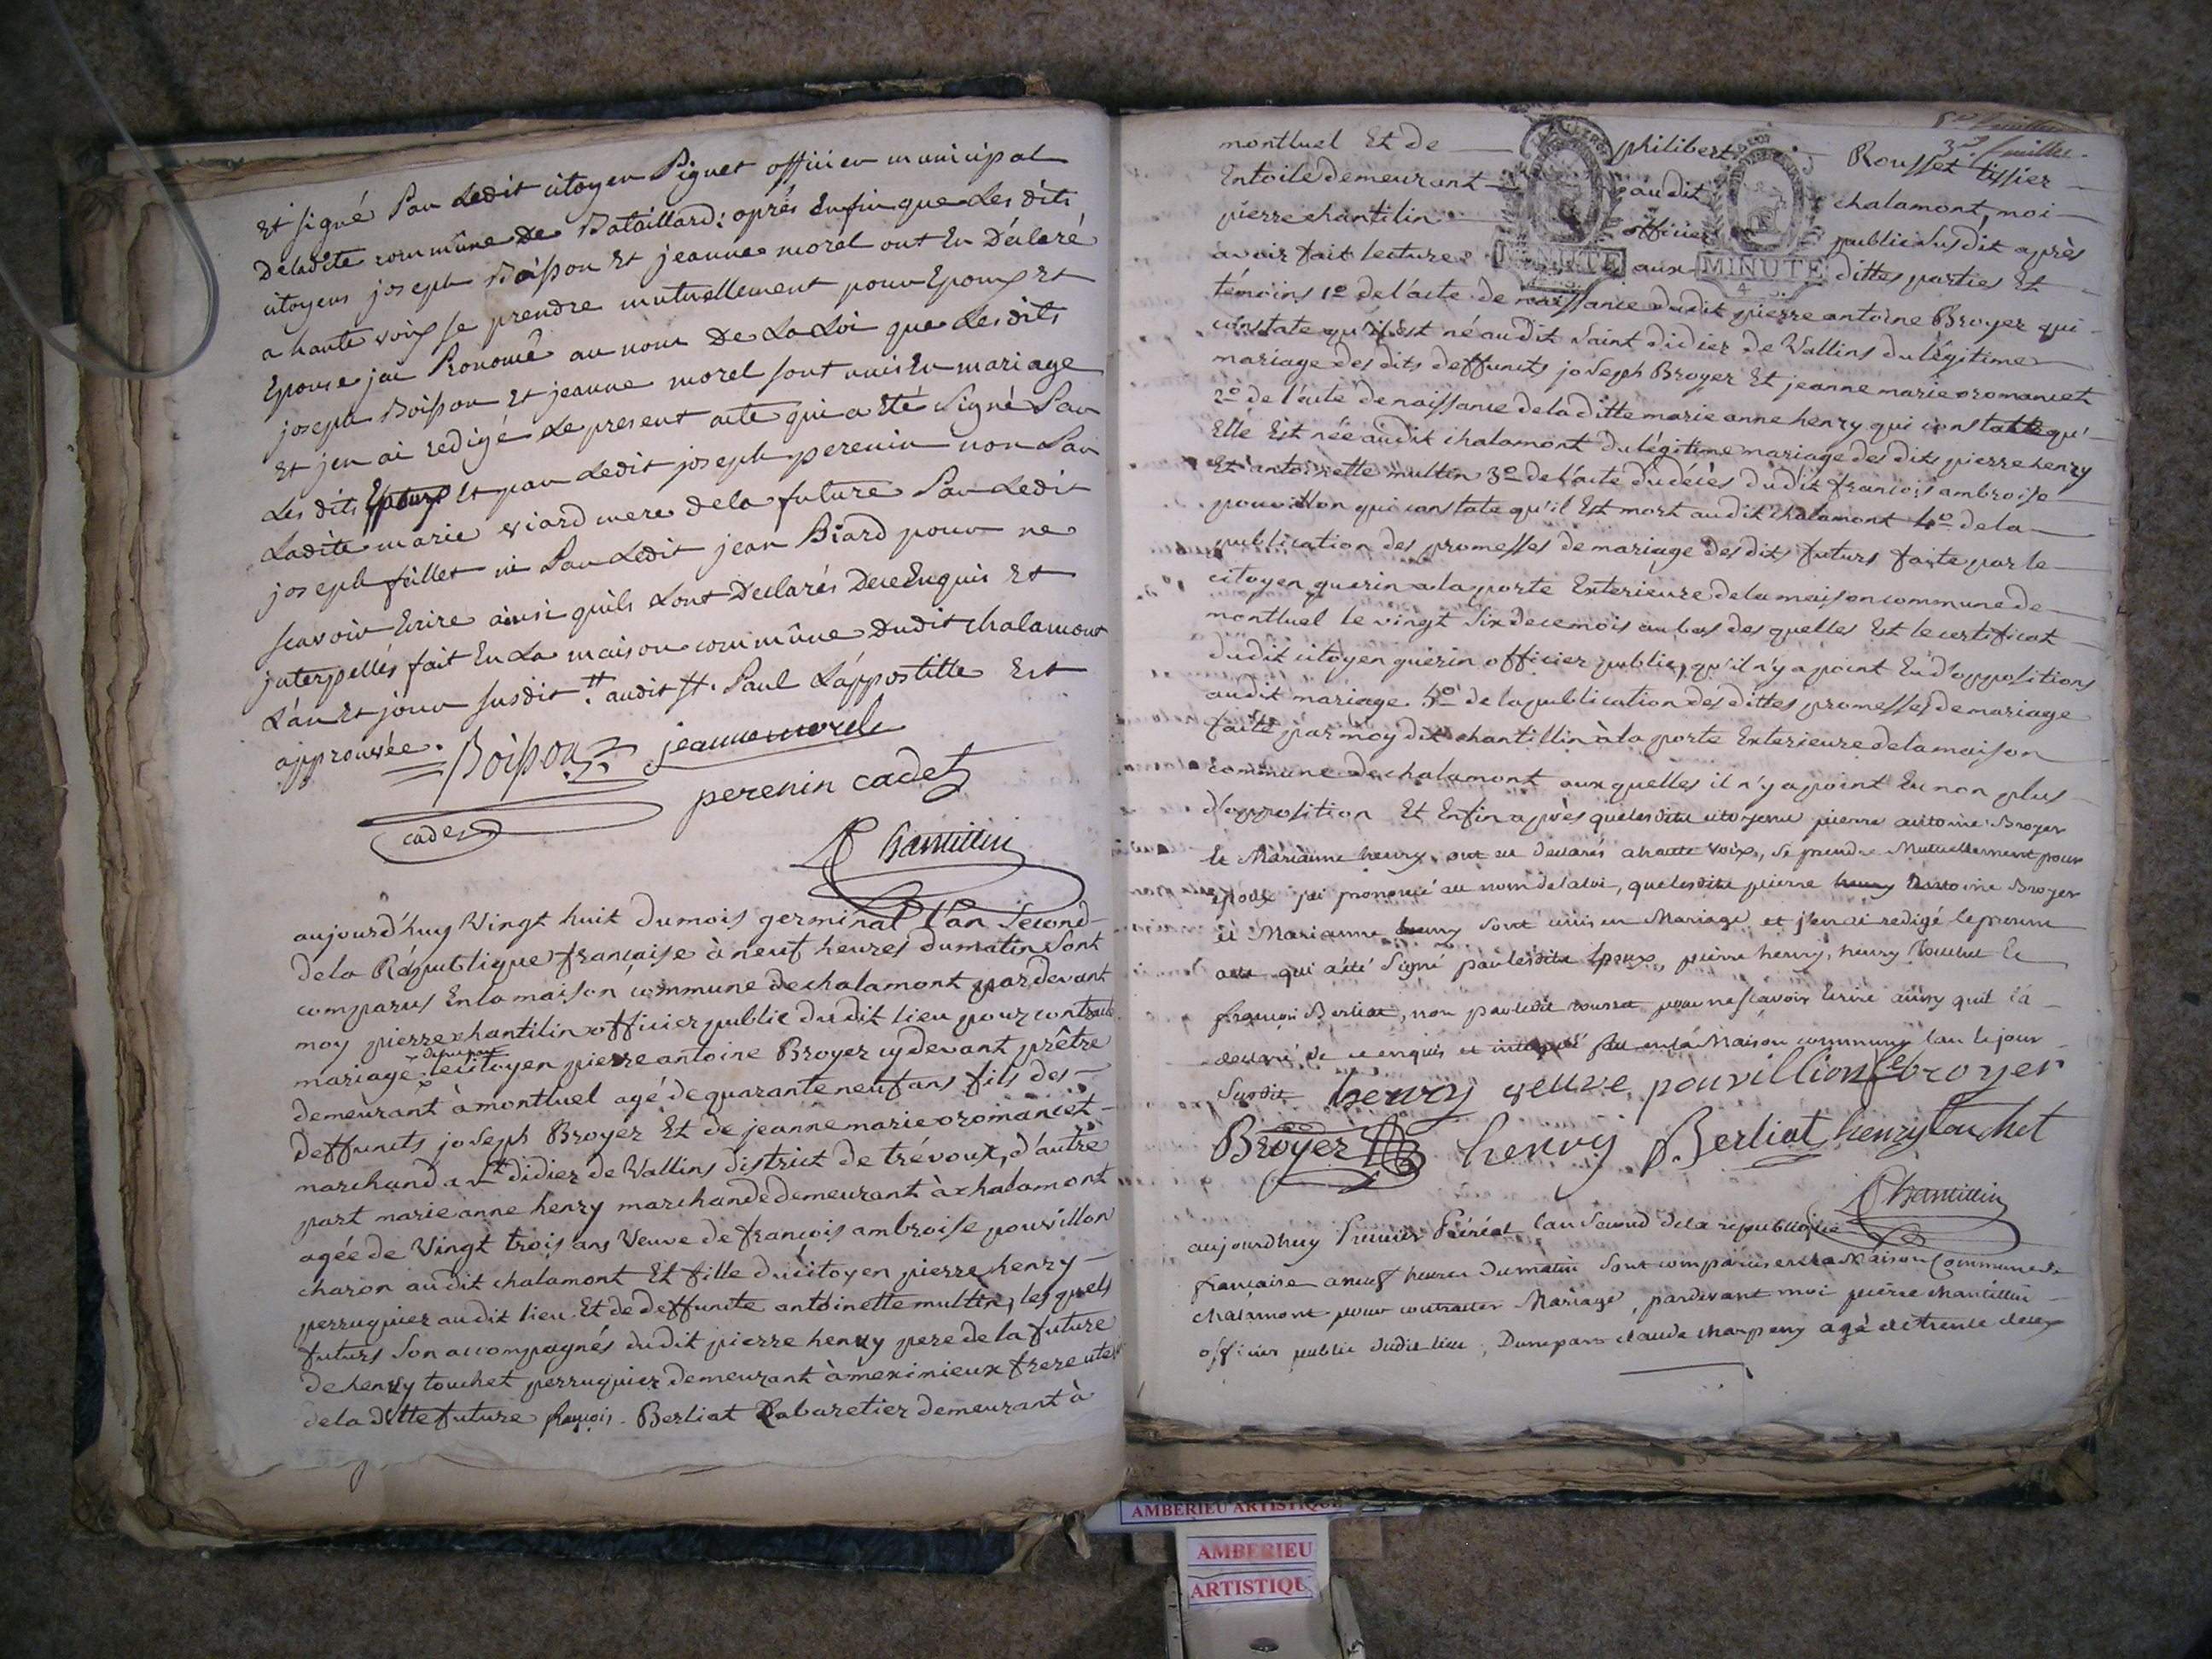 Et signé Par Ledit citoyen Piguet officier municipal
Deladite commûne De Bataillard: après Enfin que Les dits
citoyens joseph Boisson Et jeanne morel ont Eu Déclaré
a haute voix se prendre mutuellement pour Epoux Et
Epouse jai Prononcé au nom De La Loi que Lesdits
joseph Boisson Et jeanne morel sont unis En mariage
Et jen ai redigé Le present acte qui a Eté Signé Par
Les dits Epoux Et par Ledit joseph perenin non Par
Ladite marie viard mere dela future Par Ledit
joseph fillet ni Par Ledit jean Biard pour ne
scavoir Ecrire ainsi quils Lont Declarés De ce Enquis Et
jnterpellés fait En La maison commûne Dudit chalamont
L'an Et jour susdit audit St. Paul L'appostille Est
approuvée. Boisson jeanne morel
perenin cadet
cadet
P Chantillin
aujourd'huy Vingt huit du mois germinal l'an Second
de la République française à neuf heures du matin sont
comparus En la maison commune de chalamont par devant
moy pierre chantilin officier public dudit lieu pour contracté
mariage d'une part le citoyen pierre antoine Broyer cy devant prêtre
demeurant à montluel agé de quarante neuf ans fils des
deffuncts joseph Broyer Et de jeanne marie oromancet
marchand a St didier de Vallins district de trévoux, d'autre
part marie anne henry marchande demeurant à chalamont
agée de Vingt trois ans Veuve de françois ambroise pouvillon
charon audit chalamont Et fille du citoyen pierre henry
perruquier audit lieu Et de deffuncte antoinette multin, lesquels
futurs son accompagnés dudit pierre henry pere de la future
de henry touchet perruquier demeurant à meximieux frere uterin
de la ditte future françois Berliat Cabaretier demeurant à
3me feuillet
montluel Et de philibert Rousset tissier
Entoile demeurant audit chalamont, moi
pierre chantilin officier public Susdit après
avoir fait lecture aux dittes parties Et
MINUTE MINUTE
4
témoins 1o de l'acte de naissance dudit pierre antoine Broyer qui
constate qu'il Est né audit Saint didier de Vallins du légitime
mariage des dits deffuncts joseph Broyer Et jeanne marie oromancet
2o de l'acte de naissance de la ditte marie anne henry qui constatte qu'
Elle Est née audit chalamont du légitime mariage des dits pierre henry
Et antoinette multin 3o de l'acte du décès dudit francois ambroise
pouvillon qui constate qu'il Est mort audit chalamont 4o de la
publication des promesses de mariage des dits futurs faite par le
citoyen guerin a la porte Exterieure de la maison commune de
montluel le vingt Six de ce mois au bas des quelles Est le certificat
dudit citoyen guérin officier public, qu'il n'y a point Eu d'oppositions
audit mariage 5o de la publication des dittes promesses de mariage
faite par moy dit chantillin à la porte Exterieure de la maison
commune de chalamont aux quelles il n'y a point Eu non plus
d'opposition Et Enfin après que lesdits citoyens pierre antoine Broyer
Et Marianne henry ont eu declarés a haute Voix, se prendre Mutuellement pour
Epoux j'ai prononcé au nom de la loi, que lesdits pierre henry Antoine Broyer
et Marianne henry sont unis en Mariage et j'en ai redigé le present
acte qui a été Signé par lesdits Epoux, pierre henry, henry touchet le
françois Berliat, non par ledit rousset pour ne scavoir Ecrire ainsy quil l'a
declaré de ce enquis et interpellé fait en la Maison commune l'an le jour
susdit henry veuve pouvillion fe broyer
Broyer henry f. Berliat henry touchet
P Chantillin
aujourdhuy Premier Floréal l'an Second de la republique
française a neuf heures du matin sont comparus en la Maison Commune de
chalamont pour contracter Mariage, pardevant moi pierre chantillin
officier public dudit lieu, D'une part claude charpeny agé de trente deux
AMBERIEU ARTISTIQUE
AMBERIEU
ARTISTIQU